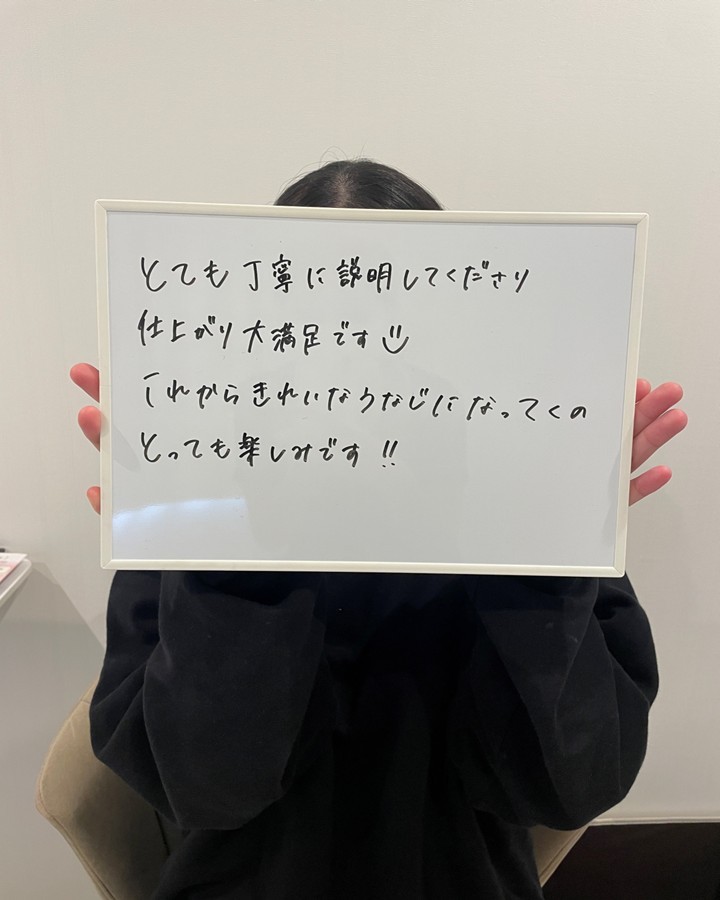 とても丁寧に説明してくださり
仕上がり大満足です
これからきれいなうなじになってくの
とっても楽しみです!!